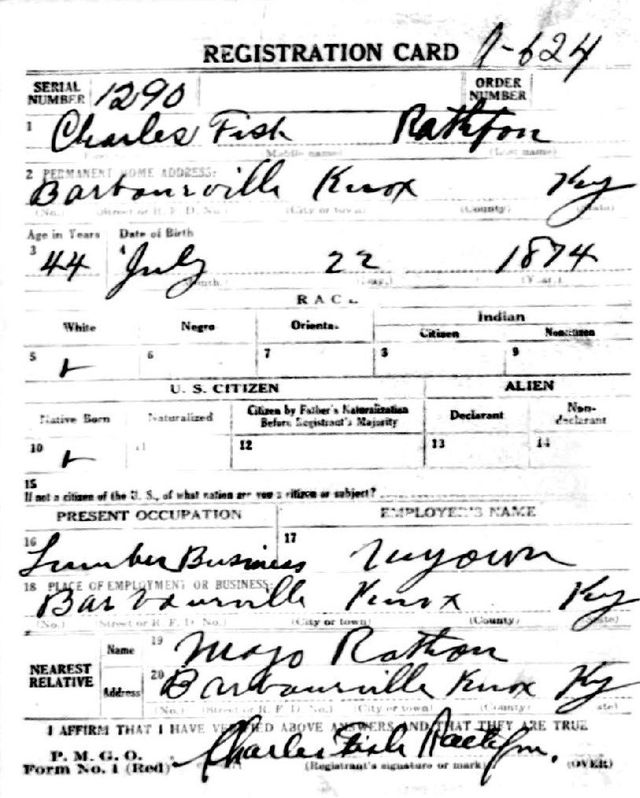 REGISTRATION CARD A-624
SERIAL NUMBER 1290 ORDER NUMBER
1 Charles Fish Rathfon
(Middle name) (Last name)
2 PERMANENT HOME ADDRESS:
Barbourville Knox Ky
(No.) (Street or R. F. D. No.) (City or town) (County) (State)
Age in Years Date of Birth
3 44 4 July 22 1874
(Month.) (Day.) (Year.)
RACE
White Negro Oriental Indian
Citizen Noncitizen
5 6 7 8 9
U. S. CITIZEN ALIEN
Native Born Naturalized Citizen by Father's Naturalization Before Registrant's Majority Declarant Non-declarant
10 11 12 13 14
15
If not a citizen of the U. S., of what nation are you a citizen or subject?
PRESENT OCCUPATION EMPLOYER'S NAME
16 Lumber Business 17 my own
18 PLACE OF EMPLOYMENT OR BUSINESS:
Barbourville Knox Ky
(No.) (Street or R. F. D. No.) (City or town) (County) (State)
NEAREST RELATIVE Name 19 Rathfon
Address 20 Barbourville Knox Ky
(No.) (Street or R. F. D. No.) (City or town) (County) (State)
I AFFIRM THAT I HAVE VERIFIED ABOVE ANSWERS AND THAT THEY ARE TRUE
P. M. G. O.
Form No. 1 (Red) Charles Fish Rathfon.
(Registrant's signature or mark) (OVER)